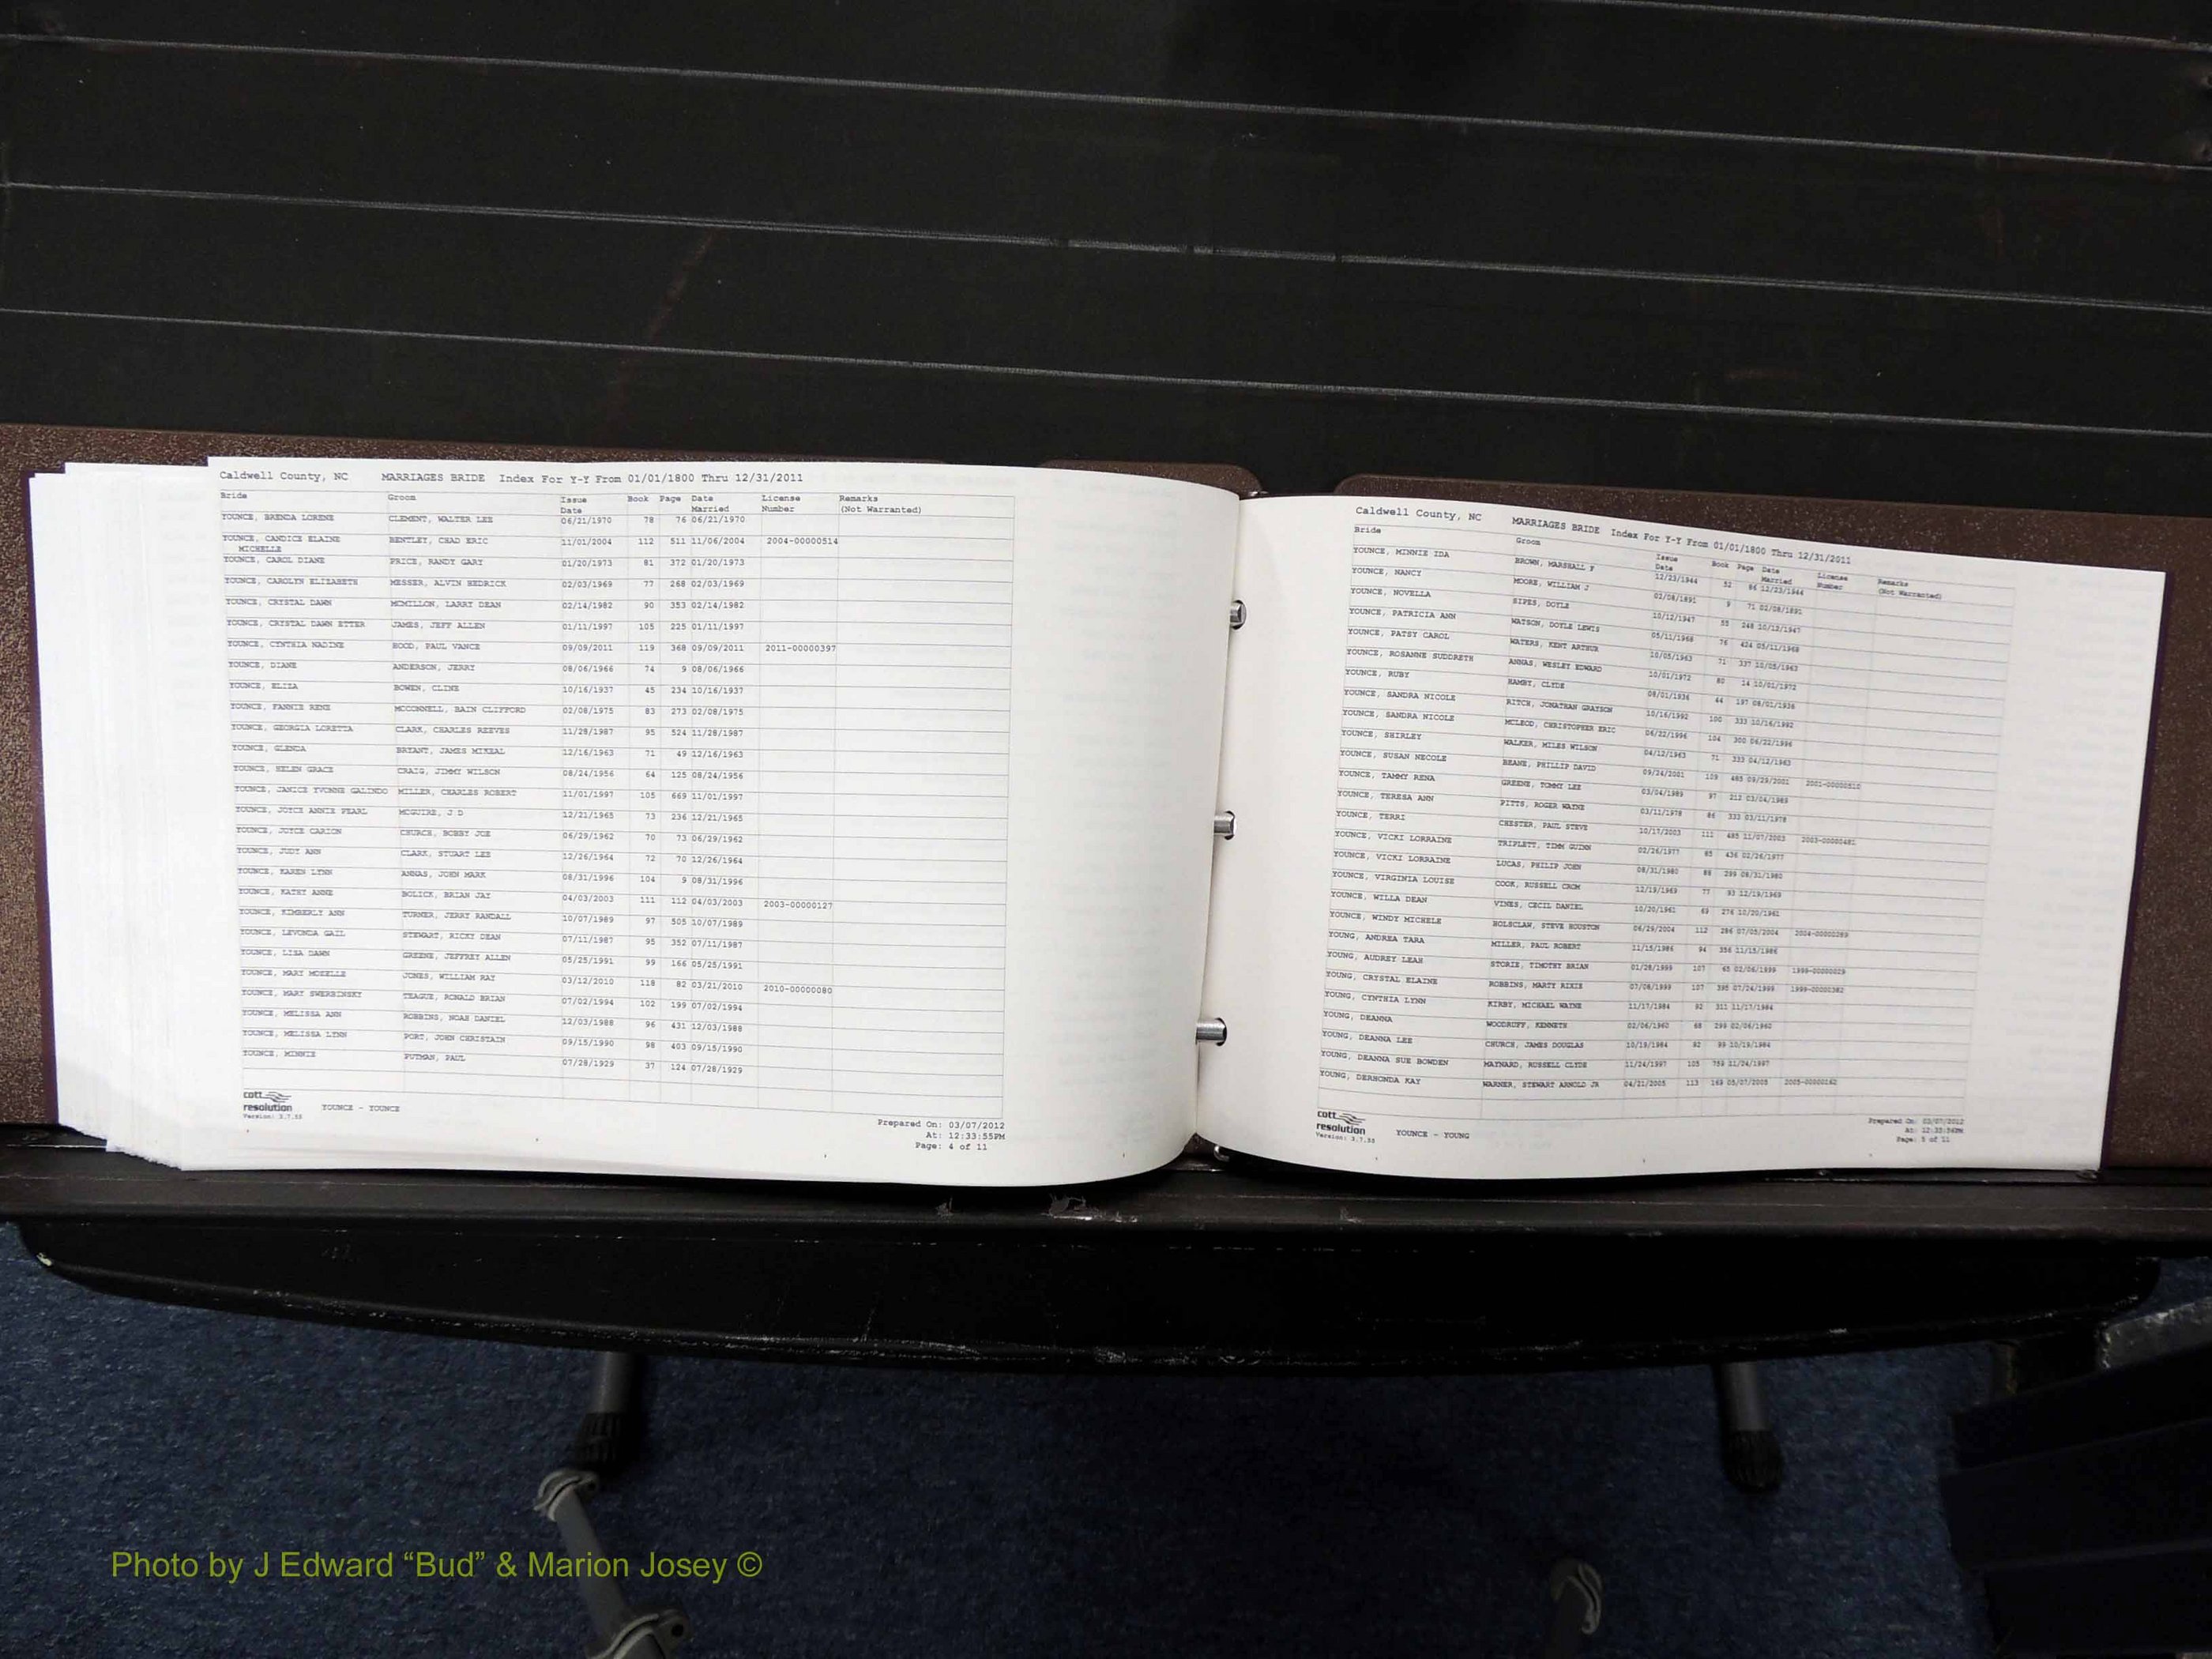 Caldwell County, NC MARRIAGES BRIDE Index For Y-Y From 01/01/1800 Thru 12/31/2011
Bride Groom Issue Date Book Page Date Married License Number Remarks (Not Warranted)
YOUNCE, BRENDA LORENE CLEMENT, WALTER LEE 06/21/1970 78 76 06/21/1970
YOUNCE, CANDICE ELAINE BENTLEY, CHAD ERIC 11/01/2004 112 511 11/06/2004 2004-00000514
MICHELLE
YOUNCE, CAROL DIANE PRICE, RANDY GARY 01/20/1973 81 372 01/20/1973
YOUNCE, CAROLYN ELIZABETH MESSER, ALVIN HEDRICK 02/03/1969 77 268 02/03/1969
YOUNCE, CRYSTAL DAWN MCMILLON, LARRY DEAN 02/14/1982 90 353 02/14/1982
YOUNCE, CRYSTAL DAWN ETTER JAMES, JEFF ALLEN 01/11/1997 105 225 01/11/1997
YOUNCE, CYNTHIA NADINE HOOD, PAUL VANCE 09/09/2011 119 368 09/09/2011 2011-00000397
YOUNCE, DIANE ANDERSON, JERRY 08/06/1966 74 9 08/06/1966
YOUNCE, ELIZA BOWEN, CLINE 10/16/1937 45 234 10/16/1937
YOUNCE, FANNIE RENE MCCONNELL, BAIN CLIFFORD 02/08/1975 83 273 02/08/1975
YOUNCE, GEORGIA LORETTA CLARK, CHARLES REEVES 11/28/1987 95 524 11/28/1987
YOUNCE, GLENDA BRYANT, JAMES MIKEAL 12/16/1963 71 49 12/16/1963
YOUNCE, HELEN GRACE CRAIG, JIMMY WILSON 08/24/1956 64 125 08/24/1956
YOUNCE, JANICE YVONNE GALINDO MILLER, CHARLES ROBERT 11/01/1997 105 669 11/01/1997
YOUNCE, JOYCE ANNIE PEARL MCGUIRE, J D 12/21/1965 73 236 12/21/1965
YOUNCE, JOYCE CARION CHURCH, BOBBY JOE 06/29/1962 70 73 06/29/1962
YOUNCE, JUDY ANN CLARK, STUART LEE 12/26/1964 72 70 12/26/1964
YOUNCE, KAREN LYNN ANNAS, JOHN MARK 08/31/1996 104 9 08/31/1996
YOUNCE, KATHY ANNE BOLICK, BRIAN JAY 04/03/2003 111 112 04/03/2003 2003-00000127
YOUNCE, KIMBERLY ANN TURNER, JERRY RANDALL 10/07/1989 97 505 10/07/1989
YOUNCE, LEVONDA GAIL STEWART, RICKY DEAN 07/11/1987 95 352 07/11/1987
YOUNCE, LISA DAWN GREENE, JEFFREY ALLEN 05/25/1991 99 166 05/25/1991
YOUNCE, MARY MOZELLE JONES, WILLIAM RAY 03/12/2010 118 82 03/21/2010 2010-00000080
YOUNCE, MARY SWERBINSKY TEAGUE, RONALD BRIAN 07/02/1994 102 199 07/02/1994
YOUNCE, MELISSA ANN ROBBINS, NOAH DANIEL 12/03/1988 96 431 12/03/1988
YOUNCE, MELISSA LYNN PORT, JOHN CHRISTAIN 09/15/1990 98 403 09/15/1990
YOUNCE, MINNIE PUTMAN, PAUL 07/28/1929 37 124 07/28/1929
cott
resolution YOUNCE - YOUNCE
Version: 3.7.53
Prepared On: 03/07/2012
At: 12:33:55PM
Page: 4 of 11
Caldwell County, NC MARRIAGES BRIDE Index For Y-Y From 01/01/1800 Thru 12/31/2011
Bride Groom Issue Date Book Page Date Married License Number Remarks (Not Warranted)
YOUNCE, MINNIE IDA BROWN, MARSHALL F 12/23/1944 52 86 12/23/1944
YOUNCE, NANCY MOORE, WILLIAM J 02/08/1891 9 71 02/08/1891
YOUNCE, NOVELLA SIPES, DOYLE 10/12/1947 55 248 10/12/1947
YOUNCE, PATRICIA ANN WATSON, DOYLE LEWIS 05/11/1968 76 424 05/11/1968
YOUNCE, PATSY CAROL WATERS, KENT ARTHUR 10/05/1963 71 337 10/05/1963
YOUNCE, ROSANNE SUDDRETH ANNAS, WESLEY EDWARD 10/01/1972 80 14 10/01/1972
YOUNCE, RUBY HAMBY, CLYDE 08/01/1936 44 197 08/01/1936
YOUNCE, SANDRA NICOLE RITCH, JONATHAN GRAYSON 10/16/1992 100 333 10/16/1992
YOUNCE, SANDRA NICOLE MCLEOD, CHRISTOPHER ERIC 06/22/1996 104 300 06/22/1996
YOUNCE, SHIRLEY WALKER, MILES WILSON 04/12/1963 71 333 04/12/1963
YOUNCE, SUSAN NECOLE BEANE, PHILLIP DAVID 09/24/2001 109 485 09/29/2001 2001-00000510
YOUNCE, TAMMY RENA GREENE, TOMMY LEE 03/04/1989 97 212 03/04/1989
YOUNCE, TERESA ANN PITTS, ROGER WAYNE 03/11/1978 86 333 03/11/1978
YOUNCE, TERRI CHESTER, PAUL STEVE 10/17/2003 111 485 11/07/2003 2003-00000481
YOUNCE, VICKI LORRAINE TRIPLETT, TIMM GUINN 02/26/1977 85 436 02/26/1977
YOUNCE, VICKI LORRAINE LUCAS, PHILIP JOHN 08/31/1980 88 299 08/31/1980
YOUNCE, VIRGINIA LOUISE COOK, RUSSELL CROM 12/19/1969 77 93 12/19/1969
YOUNCE, WILLA DEAN VINES, CECIL DANIEL 10/20/1961 69 276 10/20/1961
YOUNCE, WINDY MICHELE HOLSCLAW, STEVE HOUSTON 06/29/2004 112 286 07/05/2004 2004-00000289
YOUNG, ANDREA TARA MILLER, PAUL ROBERT 11/15/1986 94 356 11/15/1986
YOUNG, AUDREY LEAH STORIE, TIMOTHY BRIAN 01/28/1999 107 65 02/06/1999 1999-00000029
YOUNG, CRYSTAL ELAINE ROBBINS, MARTY RIXIE 07/08/1999 107 395 07/24/1999 1999-00000382
YOUNG, CYNTHIA LYNN KIRBY, MICHAEL WAYNE 11/17/1984 92 311 11/17/1984
YOUNG, DEANNA WOODRUFF, KENNETH 02/06/1960 68 299 02/06/1960
YOUNG, DEANNA LEE CHURCH, JAMES DOUGLAS 10/19/1984 92 99 10/19/1984
YOUNG, DEANNA SUE BOWDEN MAYNARD, RUSSELL CLYDE 11/24/1997 105 759 11/24/1997
YOUNG, DERHONDA KAY WARNER, STEWART ARNOLD JR 04/21/2005 113 169 05/07/2005 2005-00000162
cott
resolution YOUNCE - YOUNG
Version: 3.7.53
Prepared On: 03/07/2012
At: 12:33:56PM
Page: 5 of 11
Photo by J Edward “Bud” & Marion Josey ©